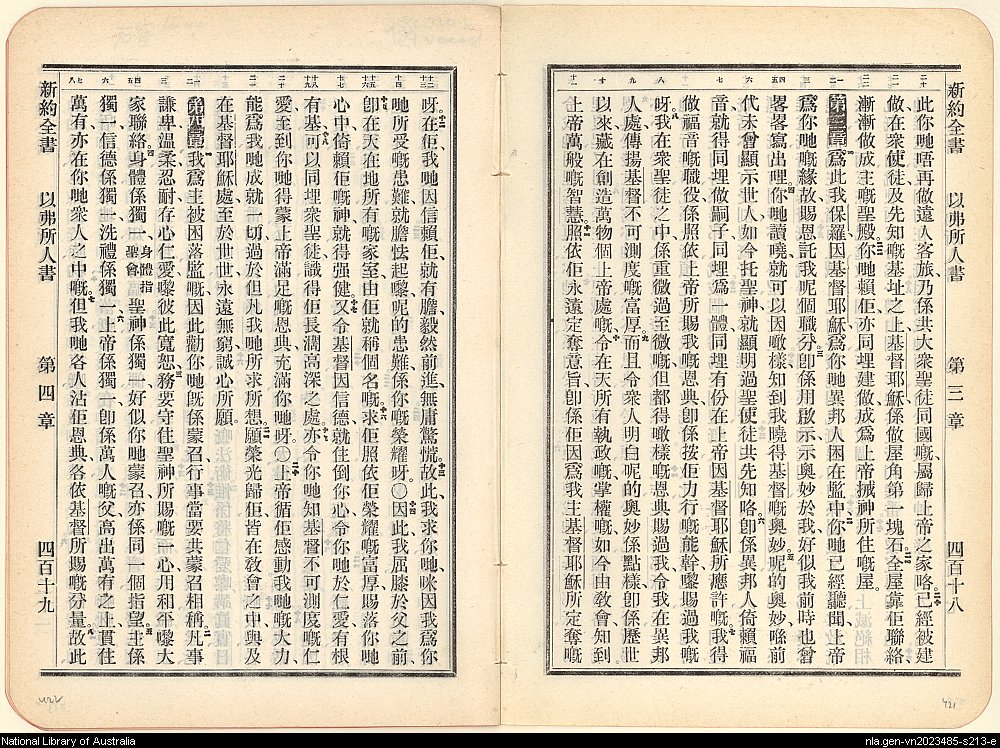 新約全書 以弗所人書 第三章 四百十八
此你哋唔再做遠人客旅乃係共大衆聖徒同國嘅屬歸上帝之家咯已經被建
做在衆使徒及先知嘅基址之上基督耶穌係做屋角第一塊石全屋靠佢聯絡
漸漸做成主嘅聖殿你哋賴佢亦同埋建做成爲上帝 神所住嘅屋。
第三章爲此我保羅因基督耶穌爲你哋異邦人困在監中你哋已經聽聞上帝
爲你哋嘅緣故賜恩託我呢個職分卽係用啟示示奧妙於我好似我前時也曾
畧畧寫出哩你哋讀曉就可以因噉樣知到我曉得基督嘅奧妙呢的奧妙喺前
代未曾顯示世人如今托聖神就顯明過聖使徒共先知咯卽係異邦人倚賴福
音就得同埋做嗣子同埋爲一體同埋有份在上帝因基督耶穌所應許嘅我得
做福音嘅職役係照依上帝所賜我嘅恩典卽係按佢力行嘅能幹嚟賜過我嘅
呀我在衆聖徒之中係重微過至微嘅但都得噉樣嘅恩典賜過我令我在異邦
人處傳揚基督不可測度嘅富厚而且令衆人明白呢的奧妙係點樣卽係歷世
以來藏在創造萬物個上帝處嘅令在天所有執政嘅掌權嘅如今由敎會知到
上帝萬般嘅智慧照依佢永遠定奪意旨卽係佢因爲我主基督耶穌所定奪嘅
呀在佢我哋因信賴佢就有膽毅然前進無庸驚慌故此我求你哋咪因我爲你
哋所受嘅患難就膽怯起嚟呢的患難係你嘅榮耀呀〇因此我屈膝於父之前
卽在天在地所有嘅家室由佢就稱個名嘅求佢照依佢榮耀嘅富厚賜落你哋
心中倚賴佢嘅神就得强健又令基督因信德就住倒你心令你哋於仁愛有根
有基可以同埋衆聖徒識得佢長濶高深之處亦令你哋知基督不可測度嘅仁
愛至到你哋得蒙上帝滿足嘅恩典充滿你哋呀〇上帝循佢感動我哋嘅大力
能爲我哋成就一切過於但凡我哋所求所想願榮光歸佢皆在敎會之中與及
在基督耶穌處至於世世永遠無窮誠心所願。
第四章我爲主被困落監嘅因此勸你哋旣係蒙召行事當要共蒙召相稱凡事
謙卑溫柔忍耐存心仁愛嚟彼此寬恕務要守住聖神所賜嘅一心用和平嚟大
家聯絡身體係獨一身體指聖會聖神係獨一好似你哋蒙召亦係同一個指望主係
獨一信德係獨一洗禮係獨一上帝係獨一卽係萬人嘅父高出萬有之上貫住
萬有亦在你哋衆人之中嘅但我哋各人沾佢恩典各依基督所賜嘅分量故此
新約全書 以弗所人書 第四章 四百十九
422
421
National Library of Australia
nla.gen-vn2023485-s213-e